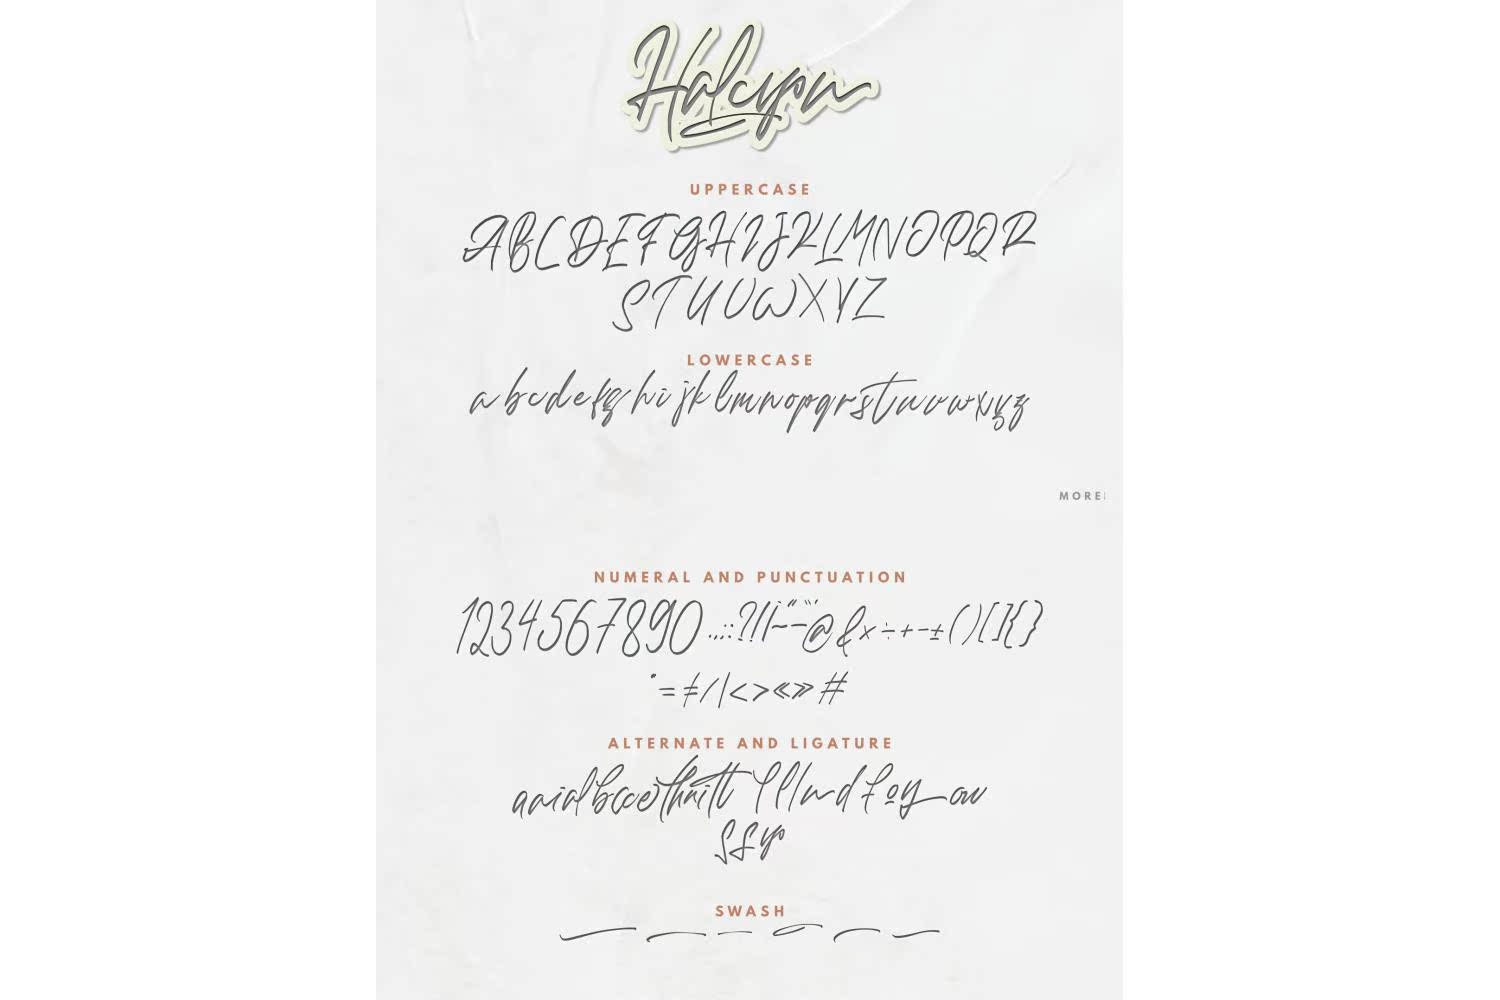 Halcyon
UPPERCASE
ABCDEFGHIJKLMNOPQR
STUVWXYZ
LOWERCASE
abcdefghijklmnopqrstuvwxyz
MORE
NUMERAL AND PUNCTUATION
1234567890 .,:;?!
@&×÷+-±()[]{}
=≠/|<>«»#
ALTERNATE AND LIGATURE
SWASH